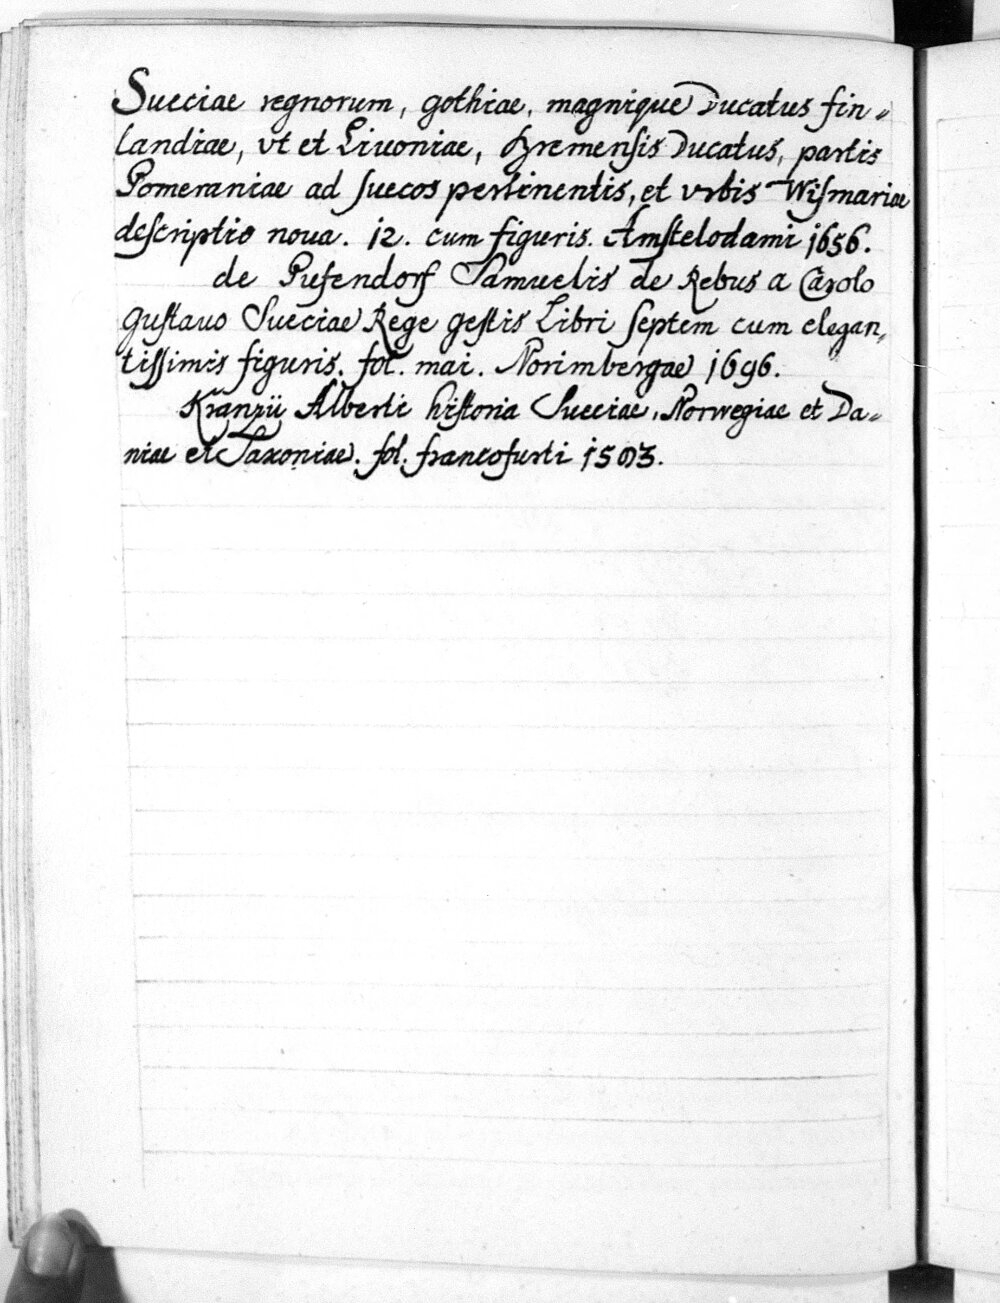 Sueciae regnorum, gothiae, magnique Ducatus fin=
landiae, vt et Liuoniae, Bremensis Ducatus, partis
Pomeraniae ad suecos pertinentis, et vrbis Wismariae
descriptio noua. 12. cum figuris. Amstelodami 1656.
de Pufendorf Samuelis de Rebus a Carolo
gustauo Sueciae Rege gestis Libri septem cum elegan,
tissimis figuris. fol. mai. Norimbergae 1696.
Kranzii Alberti historia Sueciae, Norwegiae et Da=
niae et Saxoniae. fol. francofurti